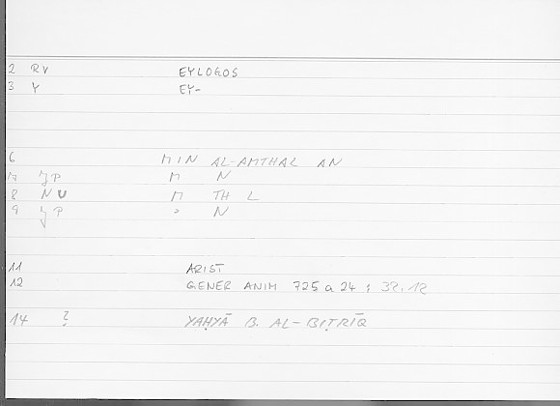 2 RV EYLOGOS
3 Y EY-
6 MIN AL-AMTHAL AN
7 JP M N
8 NU M TH L
9 JP ° N
11 ARIST
12 GENER ANIM 725 a 24 ; 32.12
14 ? YAḤYĀ B. AL-BIṬRĪQ